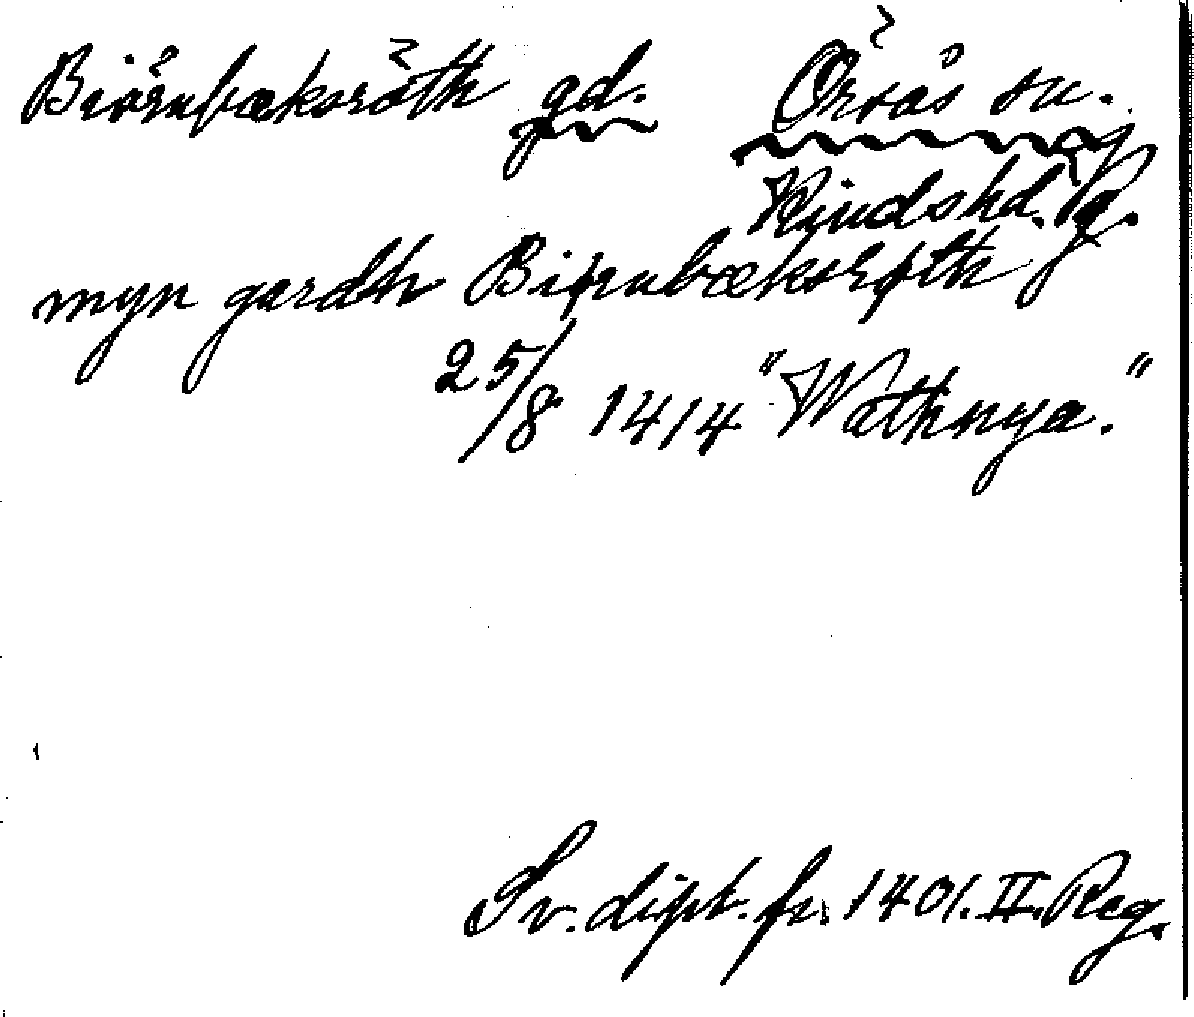 Biörnbæksröth gd. Örsås sn.
Kindshd. Vg.
myn gardh Biørnbæksrøth
25/8 1414 "Wathnya."
Sv. dipl. fr. 1401. II. Reg.